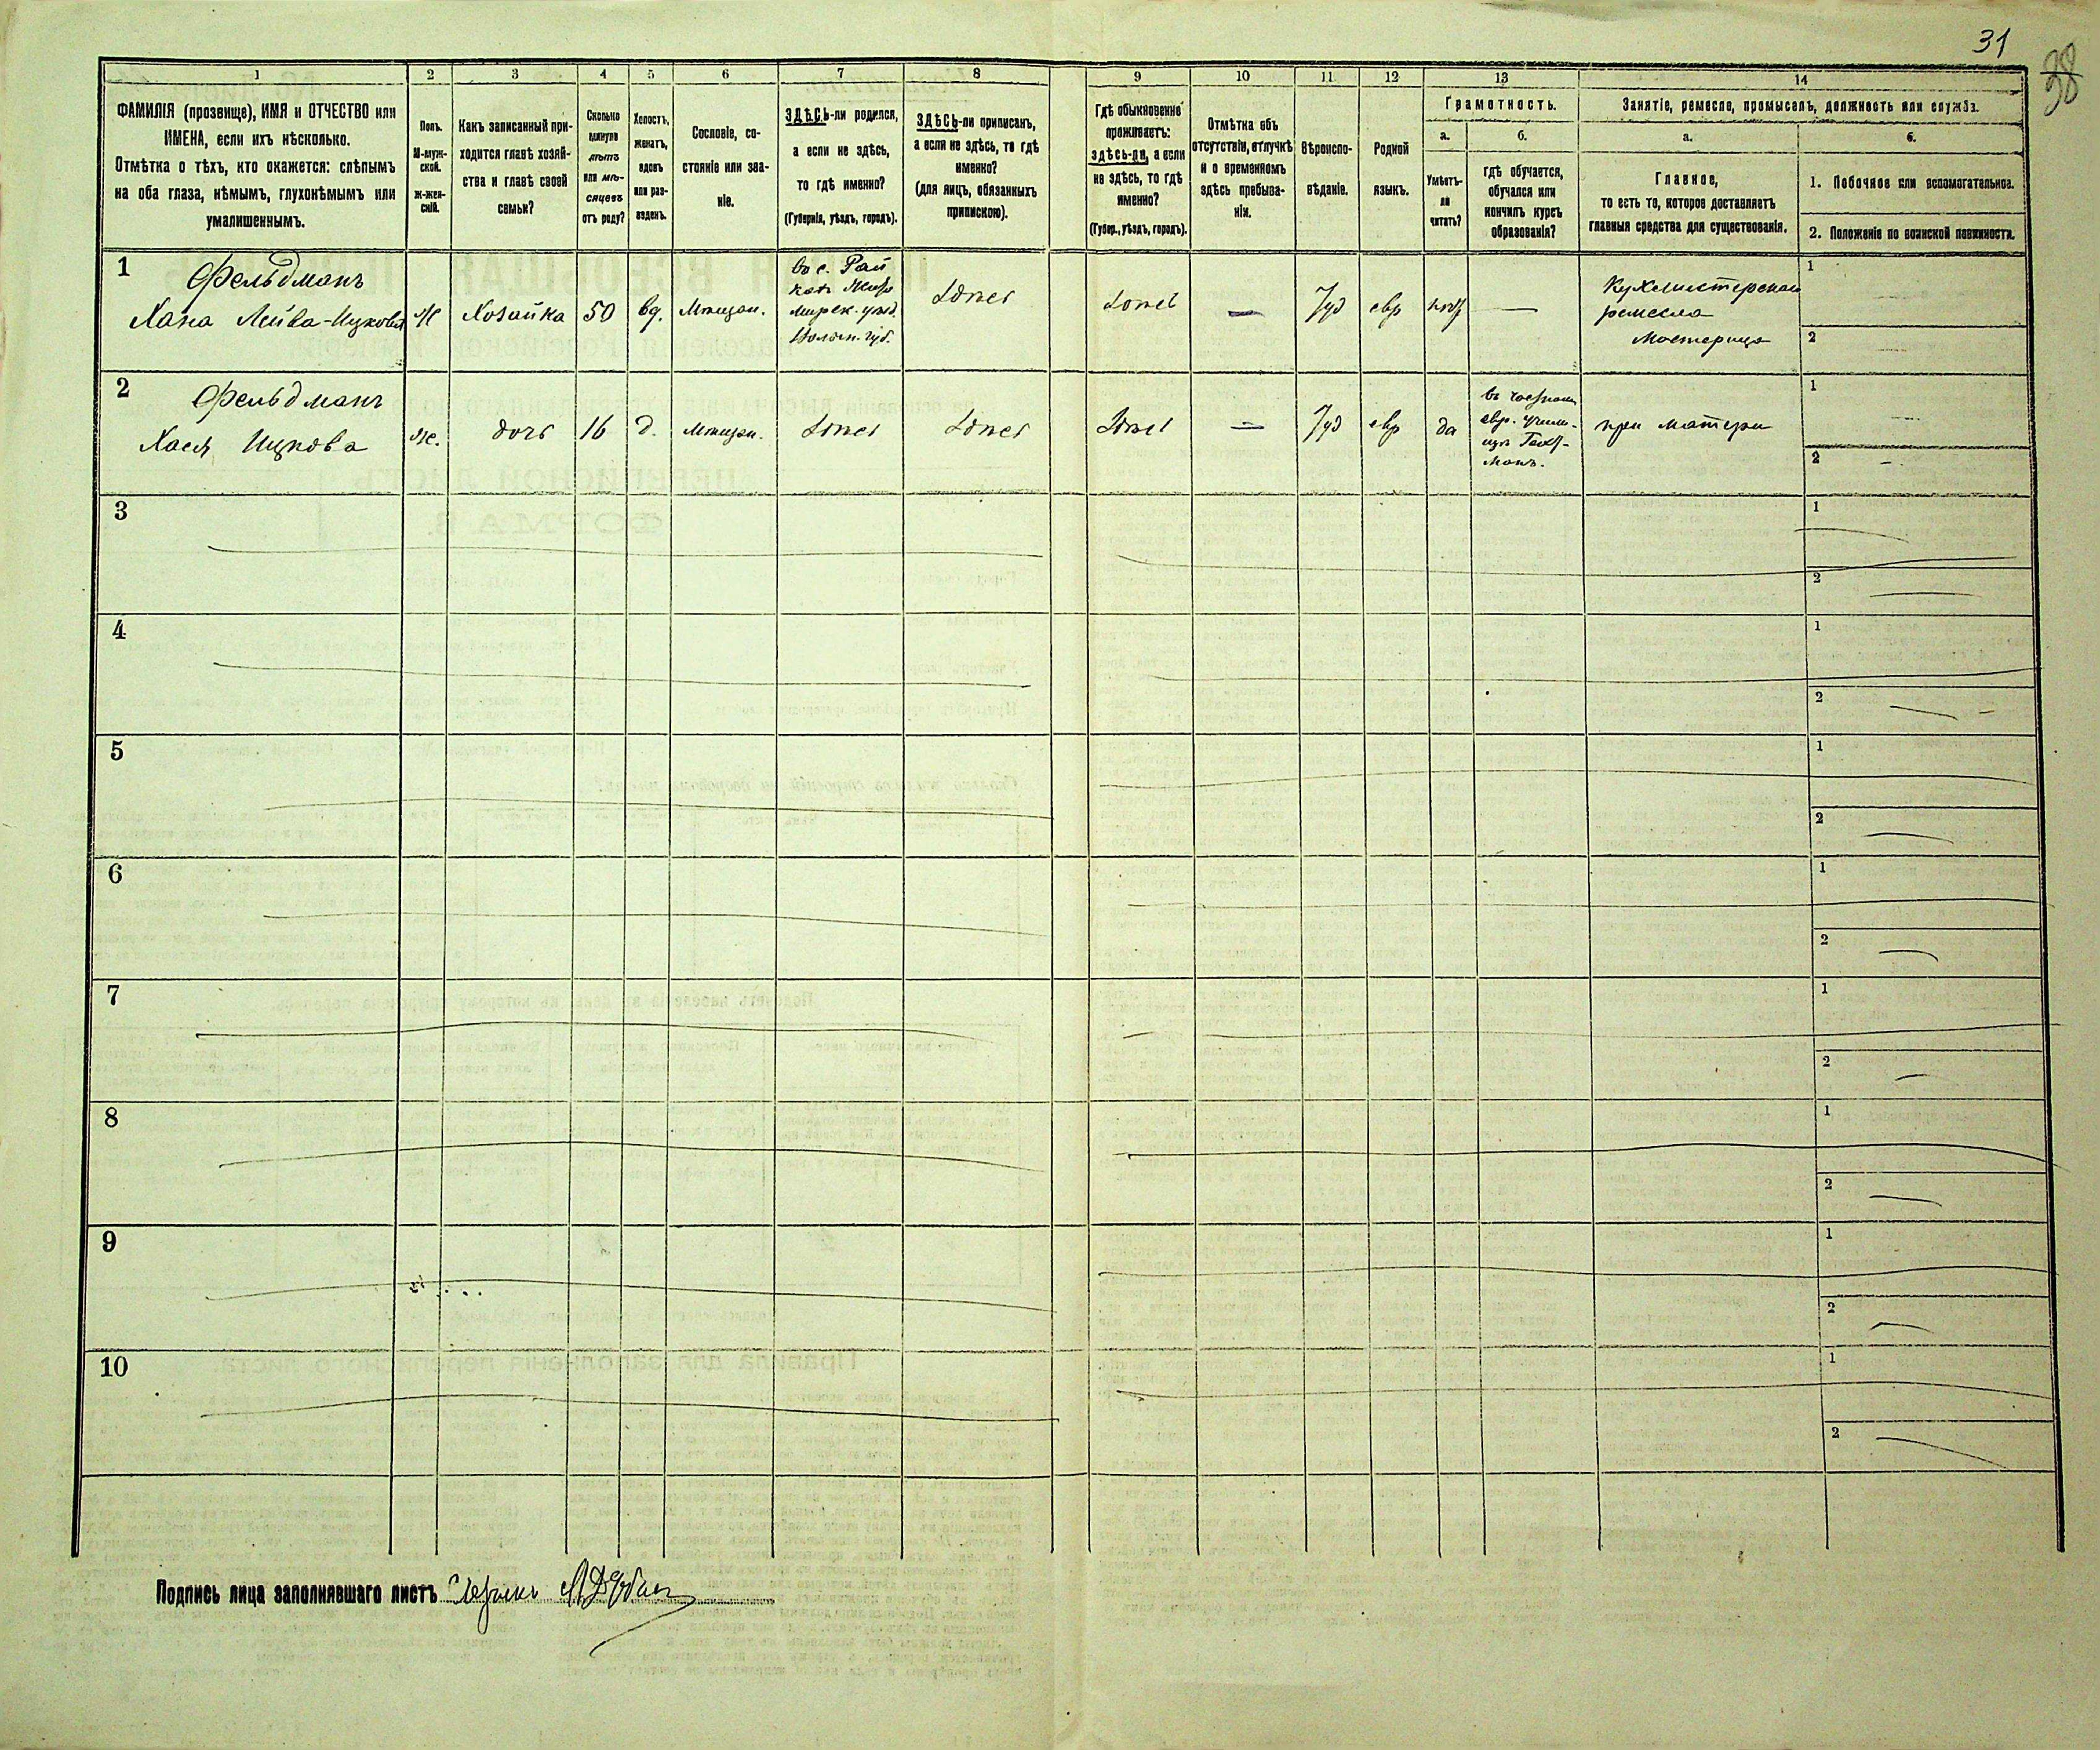 31
38
1
2
3
4
5
6
7
8
9
10
11
12
13
14
ФАМИЛІЯ (прозвище), ИМЯ и ОТЧЕСТВО или
ИМЕНА, если ихъ нѣсколько.
Отмѣтка о тѣхъ, кто окажется: слѣпымъ
на оба глаза, нѣмымъ, глухонѣмымъ или
умалишеннымъ.
Полъ.
М-муж-
ской.
Ж-жен-
скій.
Какъ записанный при-
ходится главѣ хозяй-
ства и главѣ своей
семьи?
Сколько
минуло
лѣтъ
или мѣ-
сяцевъ
отъ роду?
Холостъ,
женатъ,
вдовъ
или раз-
веденъ.
Сословіе, со-
стояніе или зва-
ніе.
ЗДѢСЬ-ли родился,
а если не здѣсь,
то гдѣ именно?
(Губернія, уѣздъ, городъ).
ЗДѢСЬ-ли приписанъ,
а если не здѣсь, то гдѣ
именно?
(для лицъ, обязанныхъ
припискою).
Гдѣ обыкновенно
проживаетъ:
здѣсь-ли, а если
не здѣсь, то гдѣ
именно?
(Губер., уѣздъ, городъ).
Отмѣтка объ
отсутствіи, отлучкѣ
и о временномъ
здѣсь пребыва-
ніи.
Вѣроиспо-
вѣданіе.
Родной
языкъ.
Грамотность.
а.
б.
Умѣетъ-
ли
читать?
гдѣ обучается,
обучался или
кончилъ курсъ
образованія?
Занятіе, ремесло, промыселъ, должность или служба.
а.
б.
Главное,
то есть то, которое доставляетъ
главныя средства для существованія.
1. Побочное или вспомогательное.
2. Положеніе по воинской повинности.
1
Фельдманъ
Хана Лейва-Ицкова
Ж
Хозяйка
50
вд.
Мѣщан.
во с. Рай
Волын. губ.
здѣсь
здѣсь
—
Іуд
евр
нѣт
—
Кухмистерское
ремесло
мастерица
1
2
2
Фельдманъ
Хася Ицкова
Ж.
дочь
16
д.
Мѣщан.
здѣсь
здѣсь
здѣсь
—
Іуд
евр
да
въ частном
евр. учили-
щѣ
при матери
1
2
3
1
2
4
1
2
5
1
2
6
1
2
7
1
2
8
1
2
9
1
2
10
1
2
Подпись лица заполнявшаго листъ